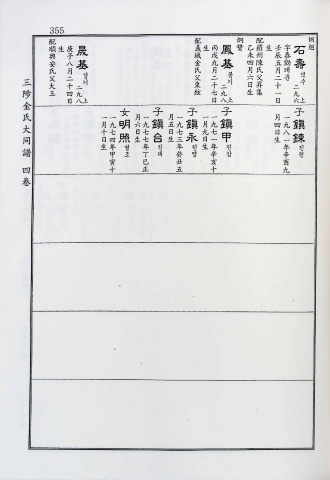 355
三陟金氏大同譜 四卷
石壽 석수 二九六上
壬辰五月二十一日
生
配羅州陳氏父昇集
乙未四月六日生
鳳基 봉기 二九八上
丙戌九月二十七日
生
配義城金氏父東
晟基 성기 二九八上
庚子八月二十四日
生
配順興安氏父大玉
子鎭鍊
一九八一年辛酉九
月四日生
子鎭甲 진갑
一九七一年辛亥十
一月九日生
子鎭永 진영
一九七三年癸丑五
月五日生
子鎭台 진태
一九七七年丁巳正
月六日生
女明照 명조
一九七四年甲寅十
一月十日生